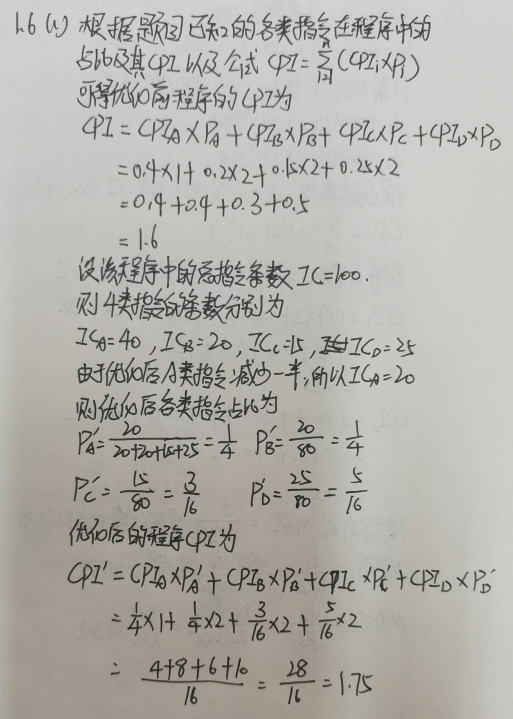 1.6 (1) 根据题目已知的各类指令在程序中的
占比及其CPI 以及公式 CPI = Σ(i=1 to n) (CPIᵢ×Pᵢ)
可得优化前程序的CPI为
CPI = CPI_A × P_A + CPI_B × P_B + CPI_C × P_C + CPI_D × P_D
= 0.4×1 + 0.2×2 + 0.15×2 + 0.25×2
= 0.4 + 0.4 + 0.3 + 0.5
= 1.6
设该程序中的总指令条数 IC=100.
则4类指令的条数分别为
IC_A=40 , IC_B=20 , IC_C=15 , IC_D=25
由于优化后A类指令减少一半,所以IC_A=20
则优化后各类指令占比为
P_A' = 20/(20+20+15+25) = 1/4 P_B' = 20/80 = 1/4
P_C' = 15/80 = 3/16 P_D' = 25/80 = 5/16
优化后的程序CPI为
CPI' = CPI_A × P_A' + CPI_B × P_B' + CPI_C × P_C' + CPI_D × P_D'
= 1/4×1 + 1/4×2 + 3/16×2 + 5/16×2
= (4+8+6+10)/16 = 28/16 = 1.75